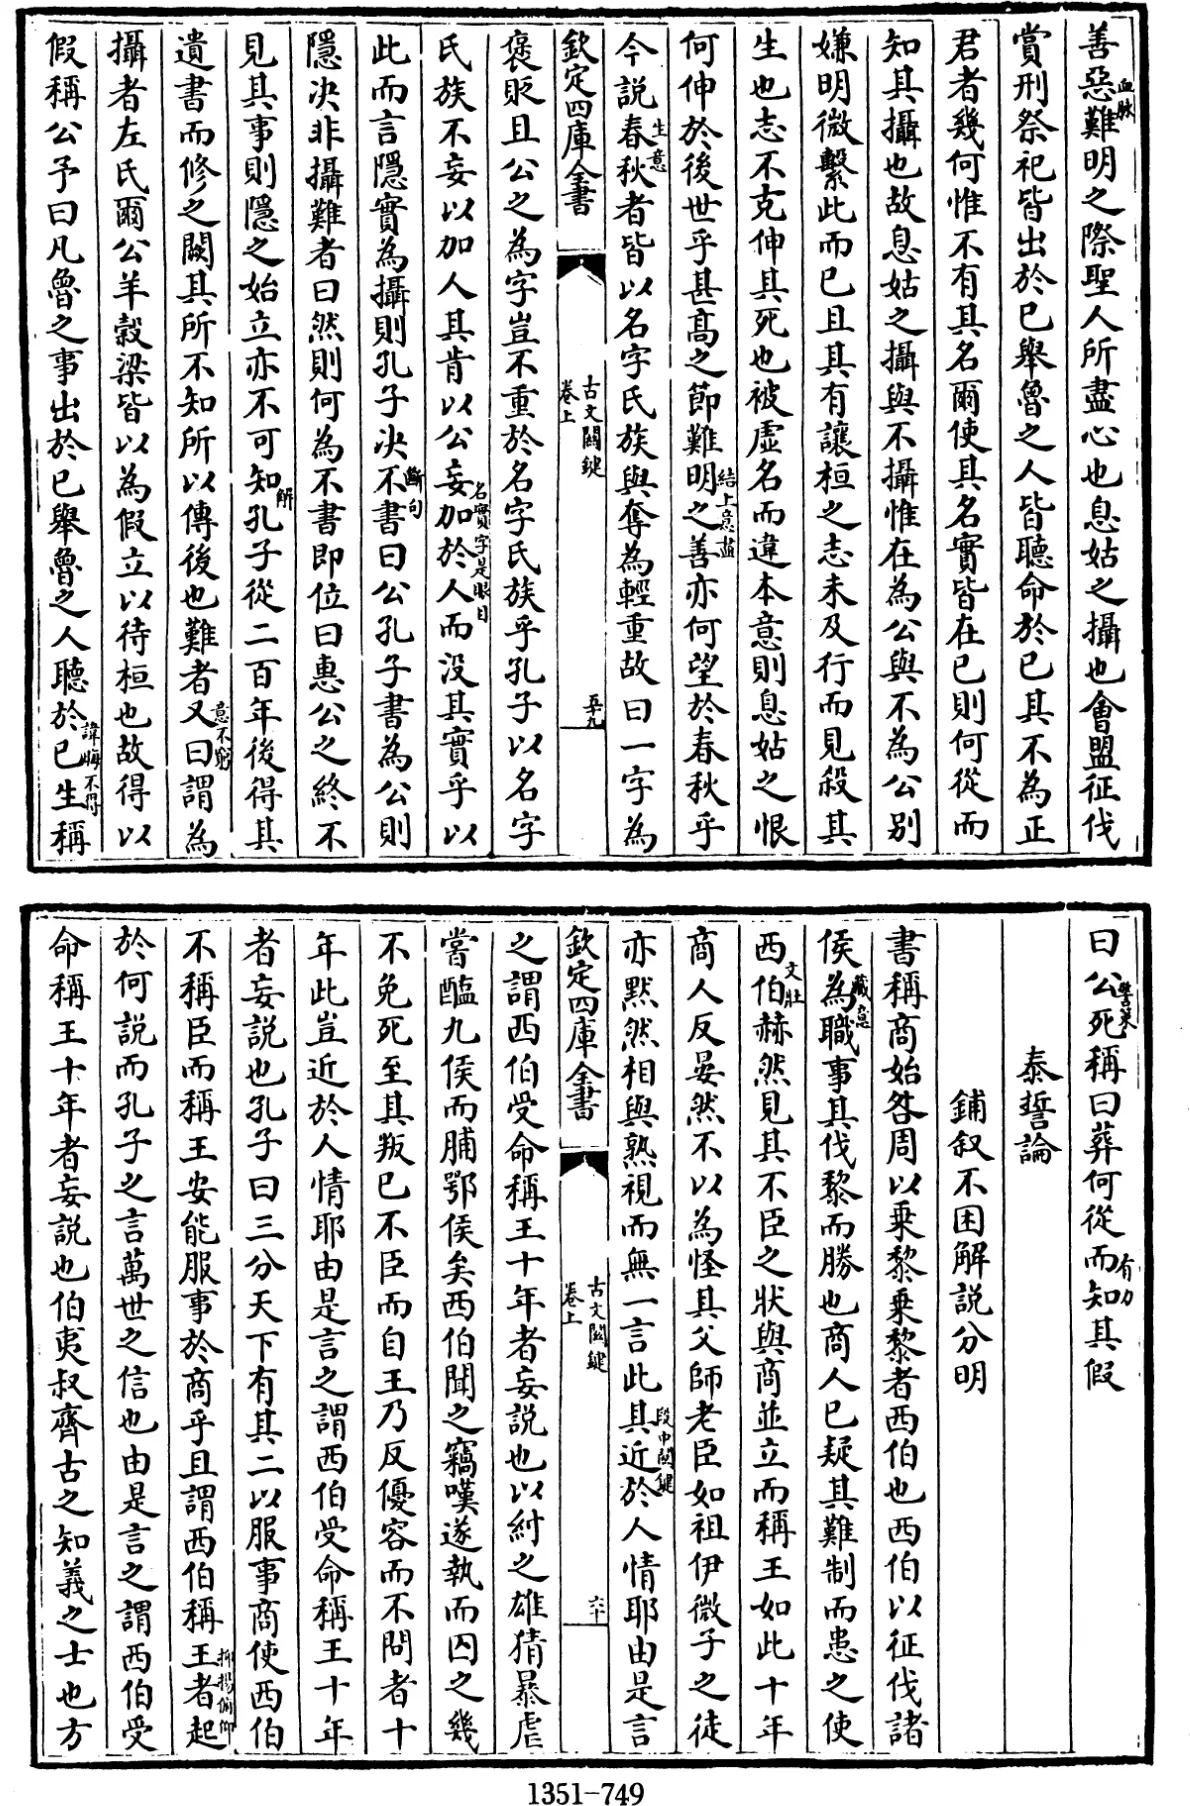 善惡難明之際聖人所盡心也息姑之攝也會盟征伐
血脉
賞刑祭祀皆出於己舉魯之人皆聽命於己其不為正
君者幾何惟不有其名爾使其名實皆在己則何從而
知其攝也故息姑之攝與不攝惟在為公與不為公别
嫌明微繫此而已且其有讓桓之志未及行而見殺其
生也志不克伸其死也被虛名而違本意則息姑之恨
何伸於後世乎甚髙之節難明之善亦何望於春秋乎
結上意盡
今說春秋者皆以名字氏族與奪為輕重故曰一字為
生意
欽定四庫全書
古文關鍵
卷上
五十九
褒貶且公之為字豈不重於名字氏族乎孔子以名字
氏族不妄以加人其肯以公妄加於人而没其實乎以
名實字是眼目
此而言隱實為攝則孔子决不書曰公孔子書為公則
斷句
隱决非攝難者曰然則何為不書即位曰惠公之終不
見其事則隱之始立亦不可知孔子從二百年後得其
解
遺書而修之闕其所不知所以傳後也難者又曰謂為
意不窮
攝者左氏爾公羊穀梁皆以為假立以待桓也故得以
假稱公予曰凡魯之事出於己舉魯之人聽於己生稱
諱晦不得
曰公死稱曰葬何從而知其假
有力
泰誓論
鋪叙不困解說分明
書稱商始咎周以乘黎乘黎者西伯也西伯以征伐諸
侯為職事其伐黎而勝也商人已疑其難制而患之使
藏意
西伯赫然見其不臣之狀與商並立而稱王如此十年
文壯
商人反晏然不以為怪其父師老臣如祖伊微子之徒
亦默然相與熟視而無一言此其近於人情耶由是言
段中關鍵
欽定四庫全書
古文關鍵
卷上
六十
之謂西伯受命稱王十年者妄說也以紂之雄猜暴虐
嘗醢九侯而脯鄂侯矣西伯聞之竊嘆遂執而囚之幾
不免死至其叛己不臣而自王乃反優容而不問者十
年此豈近於人情耶由是言之謂西伯受命稱王十年
者妄說也孔子曰三分天下有其二以服事商使西伯
不稱臣而稱王安能服事於商乎且謂西伯稱王者起
抑揚俯仰
於何說而孔子之言萬世之信也由是言之謂西伯受
命稱王十年者妄說也伯夷叔齊古之知義之士也方
1351-749